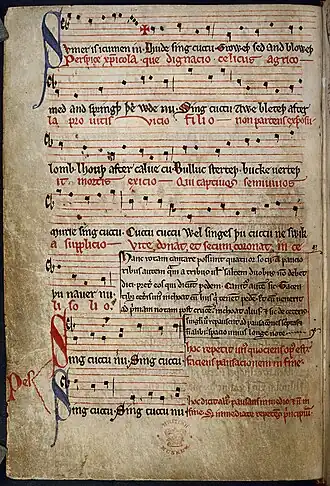 Svmer is icumen in. Lhude sing cuccu. Groweþ sed and bloweþ
Perspice xpicola. que dignacio celicus agrico
med and springþ þe wde nu. Sing cuccu Awe bleteþ after
la pro uitis vicio filio non parcens exposu
lomb. lhouþ after calue cu. Bulluc sterteþ. bucke uerteþ
it mortis exicio Qui captiuos semiuiuos
murie sing cuccu. Cuccu cuccu Wel singes þu cuccu ne swik
a supplicio Vite donat et secum coronat in ce
þu nauer nu.
li so lio.
Hanc rotam cantare possunt quatuor socij. A paucio
ribus autem quam a tribus uel saltem duobus non debet
dici. preter eos qui dicunt pedem. Canitur autem sic. Tacen
tibus ceteris unus inchoat cum hijs qui tenent pedem. Et cum uenerit
ad primam notam post crucem. inchoat alius. et sic de ceteris.
singuli uero repausent ad pausaciones scriptas
et non alibi spacio unius longe note.
Sing cuccu nu. Sing cuccu.
hoc repetit unus quociens opus est
faciens pausacionem in fine.
Pes
Sing cuccu. Sing cuccu nu
hoc dicit alius pausans in medio et non in
fine. Sed immediate repetens principium